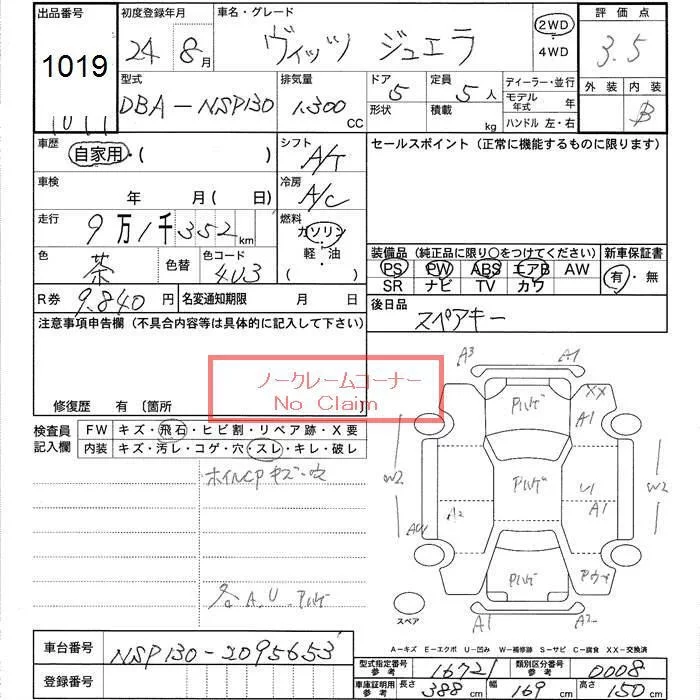 出品番号
1019
初度登録年月
24 8月
車名・グレード
ヴィッツ ジュエラ
2WD
4WD
評価点
3.5
型式
DBA-NSP130
排気量
1.300 CC
ドア 5
形状
定員 5人
積載 kg
ディーラー・並行
モデル年式 年
ハンドル 左・右
外装 内装
B
車歴
自家用・( )
シフト
A/T
セールスポイント(正常に機能するものに限ります)
車検
年 月( 日)
冷房
A/C
走行
9万1千352km
燃料
ガソリン
軽・油
( )
色
茶
色替
色コード
4U3
装備品(純正品に限り○をつけてください)
PS PW ABS エアB AW
SR ナビ TV カワ
新車保証書
有・無
R券
9.840円
名変通知期限 月 日
後日品
スペアキー
注意事項申告欄(不具合内容等は具体的に記入して下さい)
ノークレームコーナー
No Claim
修復歴 有〔箇所 〕
検査員記入欄
FW キズ・飛石・ヒビ割・リペア跡・X要
内装 キズ・汚レ・コゲ・穴・スレ・キレ・破レ
ホイルCPキズ・
各A.U.アルゲ
A3 A1
XX
アルゲ
A1
W2
アルゲ
U1
A1
W2
A2
アルゲ
A1
スペア
A-キズ E-エクボ U-凹み W-補修跡 S-サビ C-腐食 XX-交換済
車台番号
NSP130-2095653
登録番号
型式指定番号 参考
16721
類別区分番号 参考
0008
車庫証明用 参考
長さ 388cm
幅 169cm
高さ 150cm